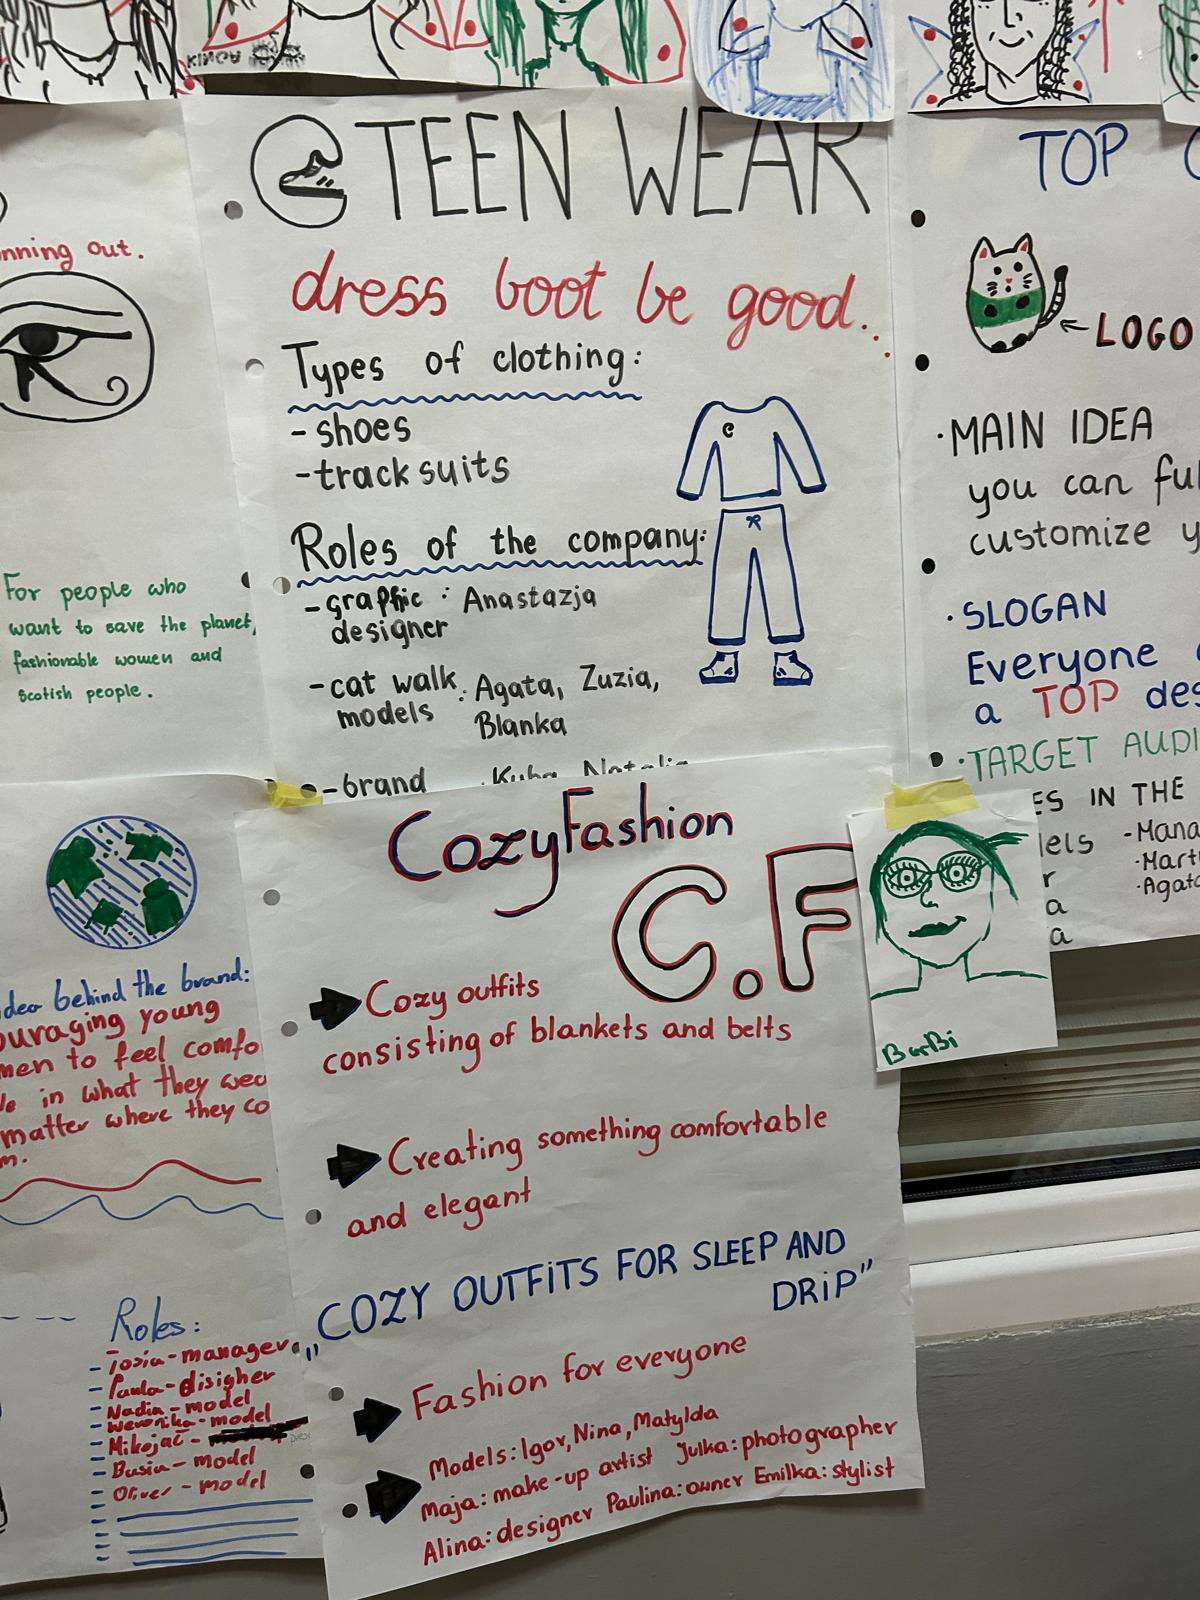 KINGA
TEEN WEAR
dress boot be good...
Types of clothing:
-shoes
-tracksuits
Roles of the company:
-graphic : Anastazja
designer
-cat walk : Agata, Zuzia,
models Blanka
-brand Kuba, Natalia
nning out.
For people who
want to save the planet,
fashionable women and
Scotish people.
TOP
LOGO
·MAIN IDEA
you can ful
customize y
·SLOGAN
Everyone
a TOP des
·TARGET AUDI
ES IN THE
els -Mana
r ·Mart
a ·Agata
a
idea behind the brand:
ouraging young
men to feel comfo
in what they wea
matter where they co
m.
Roles:
- Tosia-manager
- Paula-disigher
- Nadia-model
- Weronika-model
- Mikojač -
- Busia-model
- Oliver-model
CozyFashion
C.F
Cozy outfits
consisting of blankets and belts
Creating something comfortable
and elegant
„COZY OUTFiTS FOR SLEEP AND
DRiP”
Fashion for everyone
Models: Igor, Nina, Matylda
Maja: make-up artist Julka: photographer
Alina: designer Paulina: owner Emilka: stylist
BarBi